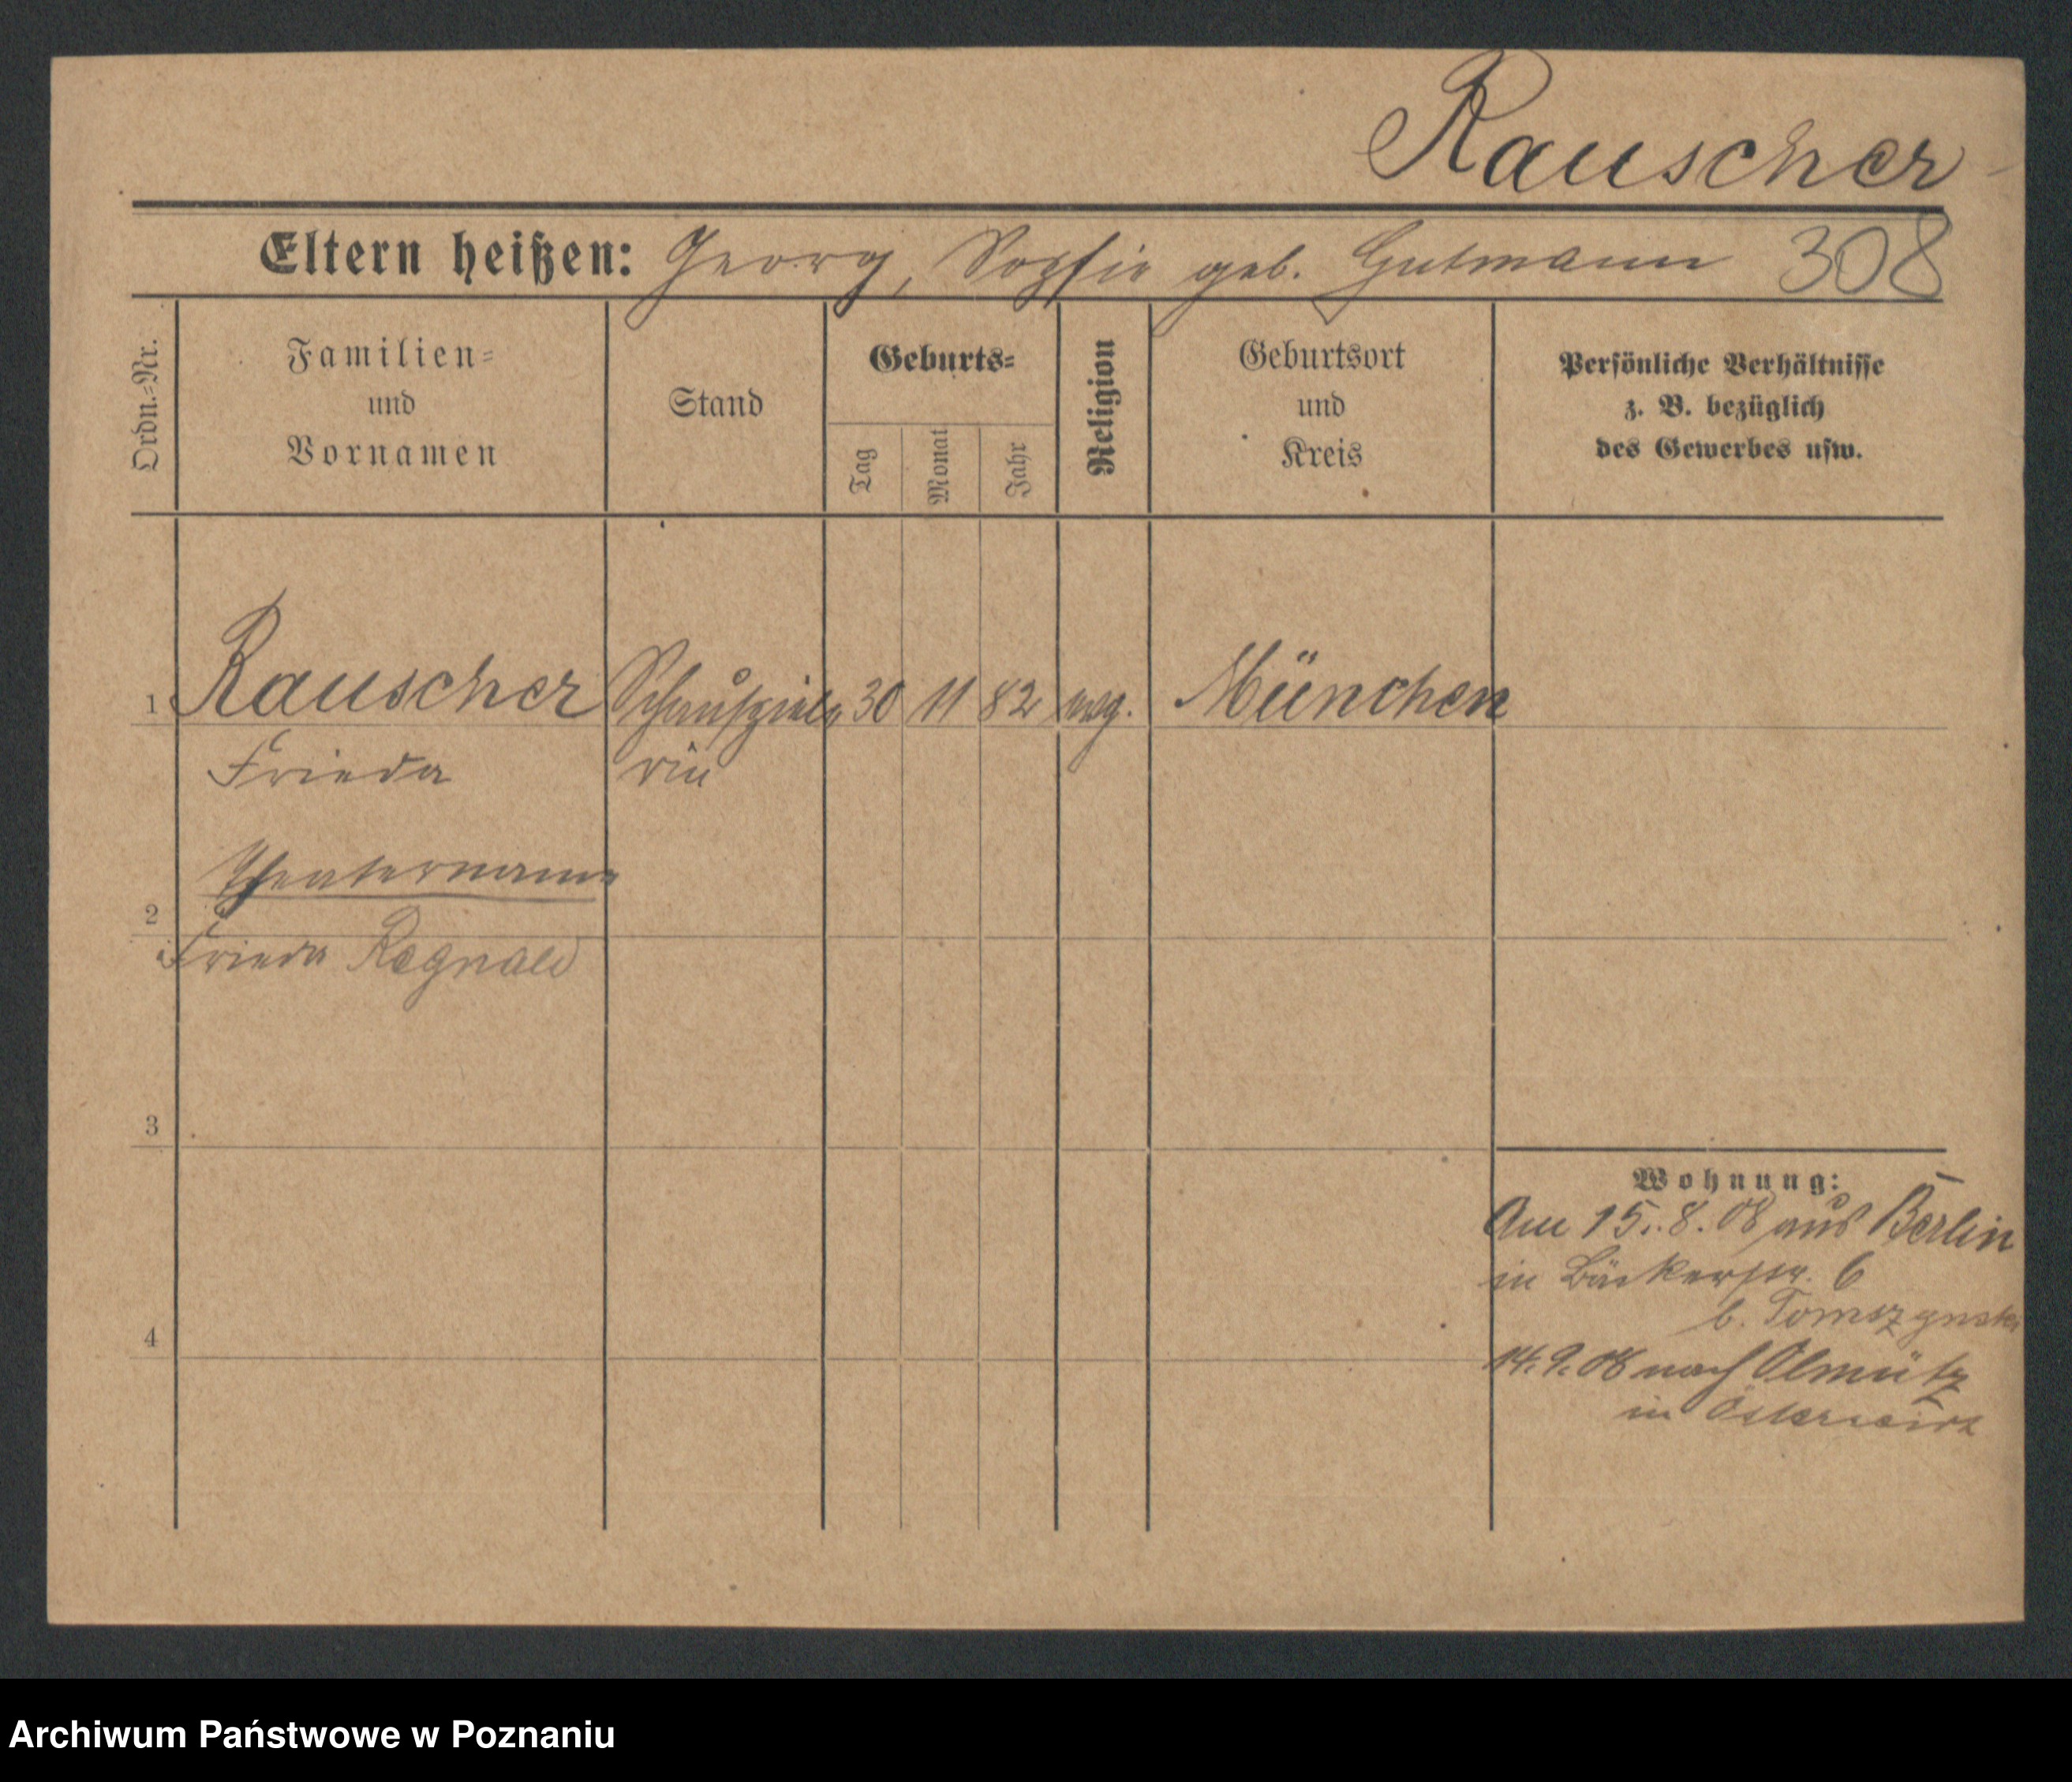 Rauscher
Eltern heißen: Georg, Sophie geb. Gutmann 308
Ordn.=Nr.
Familien=
und
Vornamen
Stand
Geburts=
Tag
Monat
Jahr
Religion
Geburtsort
und
Kreis
Persönliche Verhältnisse
z. B. bezüglich
des Gewerbes usw.
1 Rauscher Schauspiele 30 11 82 evg. München
Frieda rin
Theatername
2
Frieda Regnald
3
Wohnung:
Am 15.8.08 aus Berlin
in Bäckerstr. 6
b.
4
14.9.08 nach Olmütz
in Österreich
Archiwum Państwowe w Poznaniu